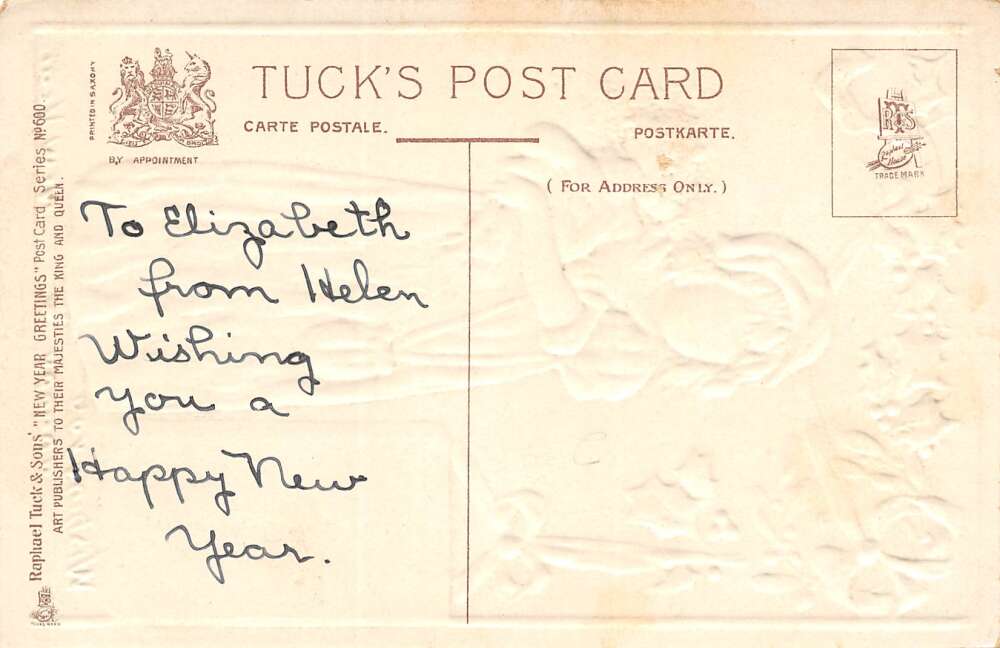 TUCK'S POST CARD
CARTE POSTALE.
POSTKARTE.
(FOR ADDRESS ONLY.)
BY APPOINTMENT
PRINTED IN SAXONY
RTS
Raphael
House
TRADE MARK
To Elizabeth
from Helen
Wishing
you a
Happy New
Year.
Raphael Tuck & Sons' "NEW YEAR GREETINGS" Post Card Series Nº 600.
ART PUBLISHERS TO THEIR MAJESTIES THE KING AND QUEEN.